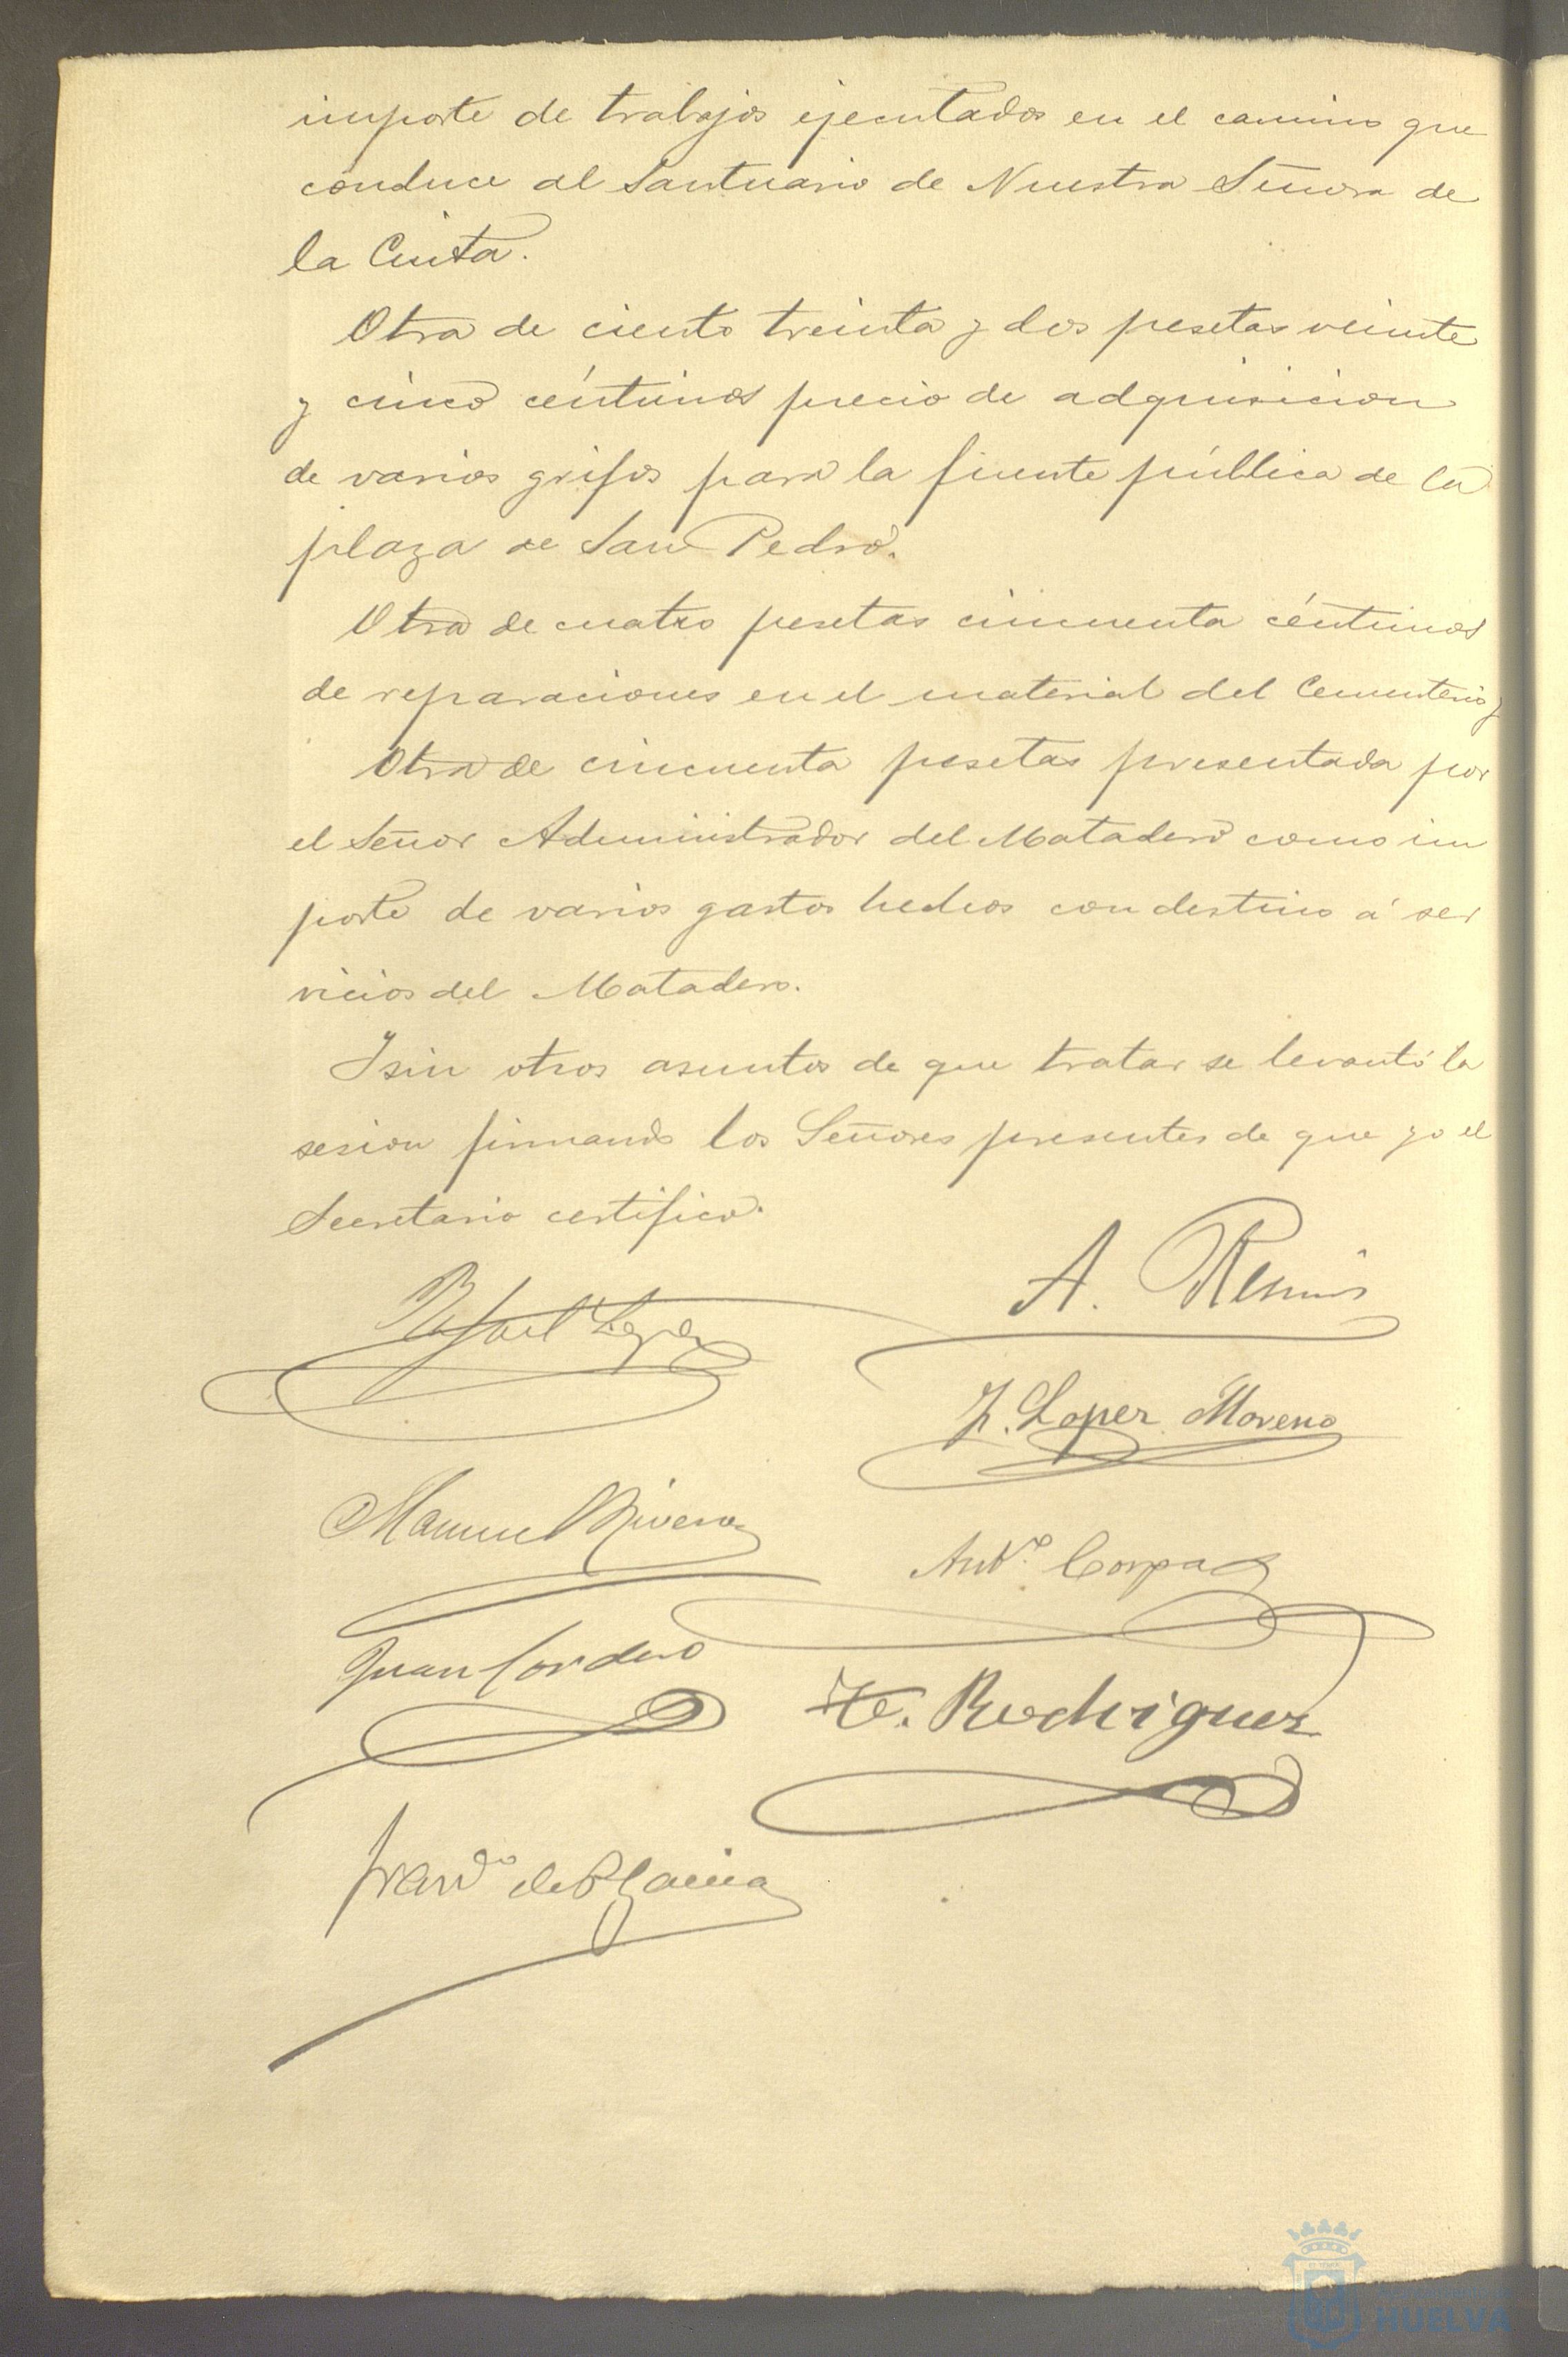 importe de trabajos ejecutados en el camino que
conduce al Santuario de Nuestra Señora de
la Cinta.
Otra de ciento treinta y dos pesetas veinte
y cinco céntimos precio de adquisicion
de varios grifos para la fuente pública de la
plaza de San Pedro.
Otra de cuatro pesetas cincuenta céntimos
de reparaciones en el material del Cementerio y
Otra de cincuenta pesetas presentada por
el Señor Administrador del Matadero como im
porte de varios gastos hechos con destino á ser
vicios del Matadero.
Y sin otros asuntos de que tratar se levantó la
sesion firmando los Señores presentes de que yo el
Secretario certifico.
A.
Rafael Lopez
J. Lopez Moreno
Manuel Rivera
Antº. Corpas
Juan Cordero
Rodriguez
de la
HUELVA